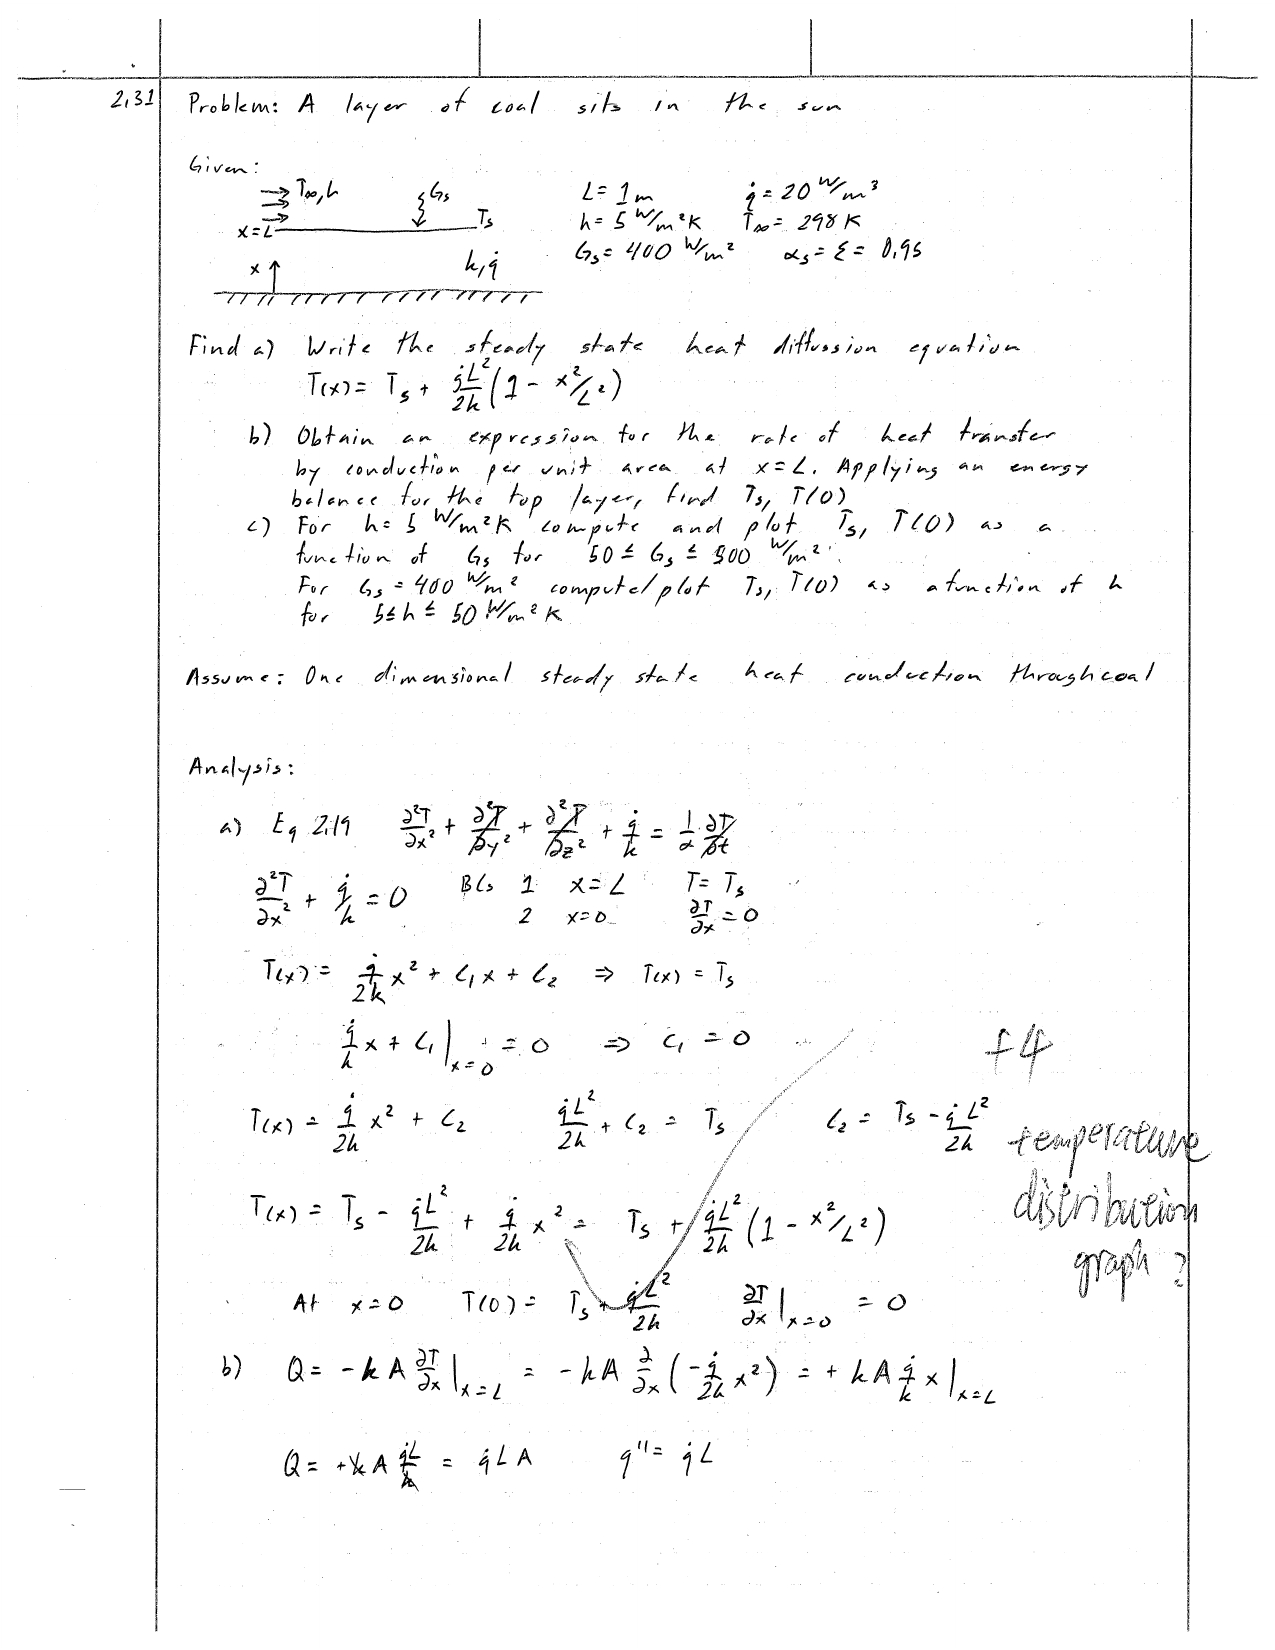 2.31 Problem: A layer of coal sits in the sun
Given:
T∞, h Gs L = 1m q̇ = 20 W/m³
x=L Ts h = 5 W/m²K T∞ = 298 K
Gs = 400 W/m² αs = ε = 0.95
x k, q̇
Find a) Write the steady state heat diffussion equation
T(x) = Ts + q̇L²/2k (1 - x²/L²)
b) Obtain an expression for the rate of heat transfer
by conduction per unit area at x=L. Applying an energy
balance for the top layer, find Ts, T(0)
c) For h = 5 W/m²K compute and plot Ts, T(0) as a
function of Gs for 50 ≤ Gs ≤ 500 W/m².
For Gs = 400 W/m² compute/plot Ts, T(0) as a function of h
for 5 ≤ h ≤ 50 W/m²K
Assume: One dimensional steady state heat conduction through coal
Analysis:
a) Eq 2.19 ∂²T/∂x² + ∂²T/∂y² + ∂²T/∂z² + q̇/k = 1/α ∂T/∂t
∂²T/∂x² + q̇/k = 0 BCs 1 x=L T = Ts
2 x=0 ∂T/∂x = 0
T(x) = q̇/2k x² + C₁x + C₂ ⇒ T(x) = Ts
q̇/k x + C₁|x=0 = 0 ⇒ C₁ = 0
+4
T(x) = q̇/2k x² + C₂ q̇L²/2k + C₂ = Ts C₂ = Ts - q̇L²/2k
temperature
distribution
graph?
T(x) = Ts - q̇L²/2k + q̇/2k x² = Ts + q̇L²/2k (1 - x²/L²)
At x=0 T(0) = Ts + q̇L²/2k ∂T/∂x|x=0 = 0
b) Q = -kA ∂T/∂x|x=L = -kA ∂/∂x (-q̇/2k x²) = +kA q̇/k x|x=L
Q = +kA q̇L/k = q̇LA q'' = q̇L